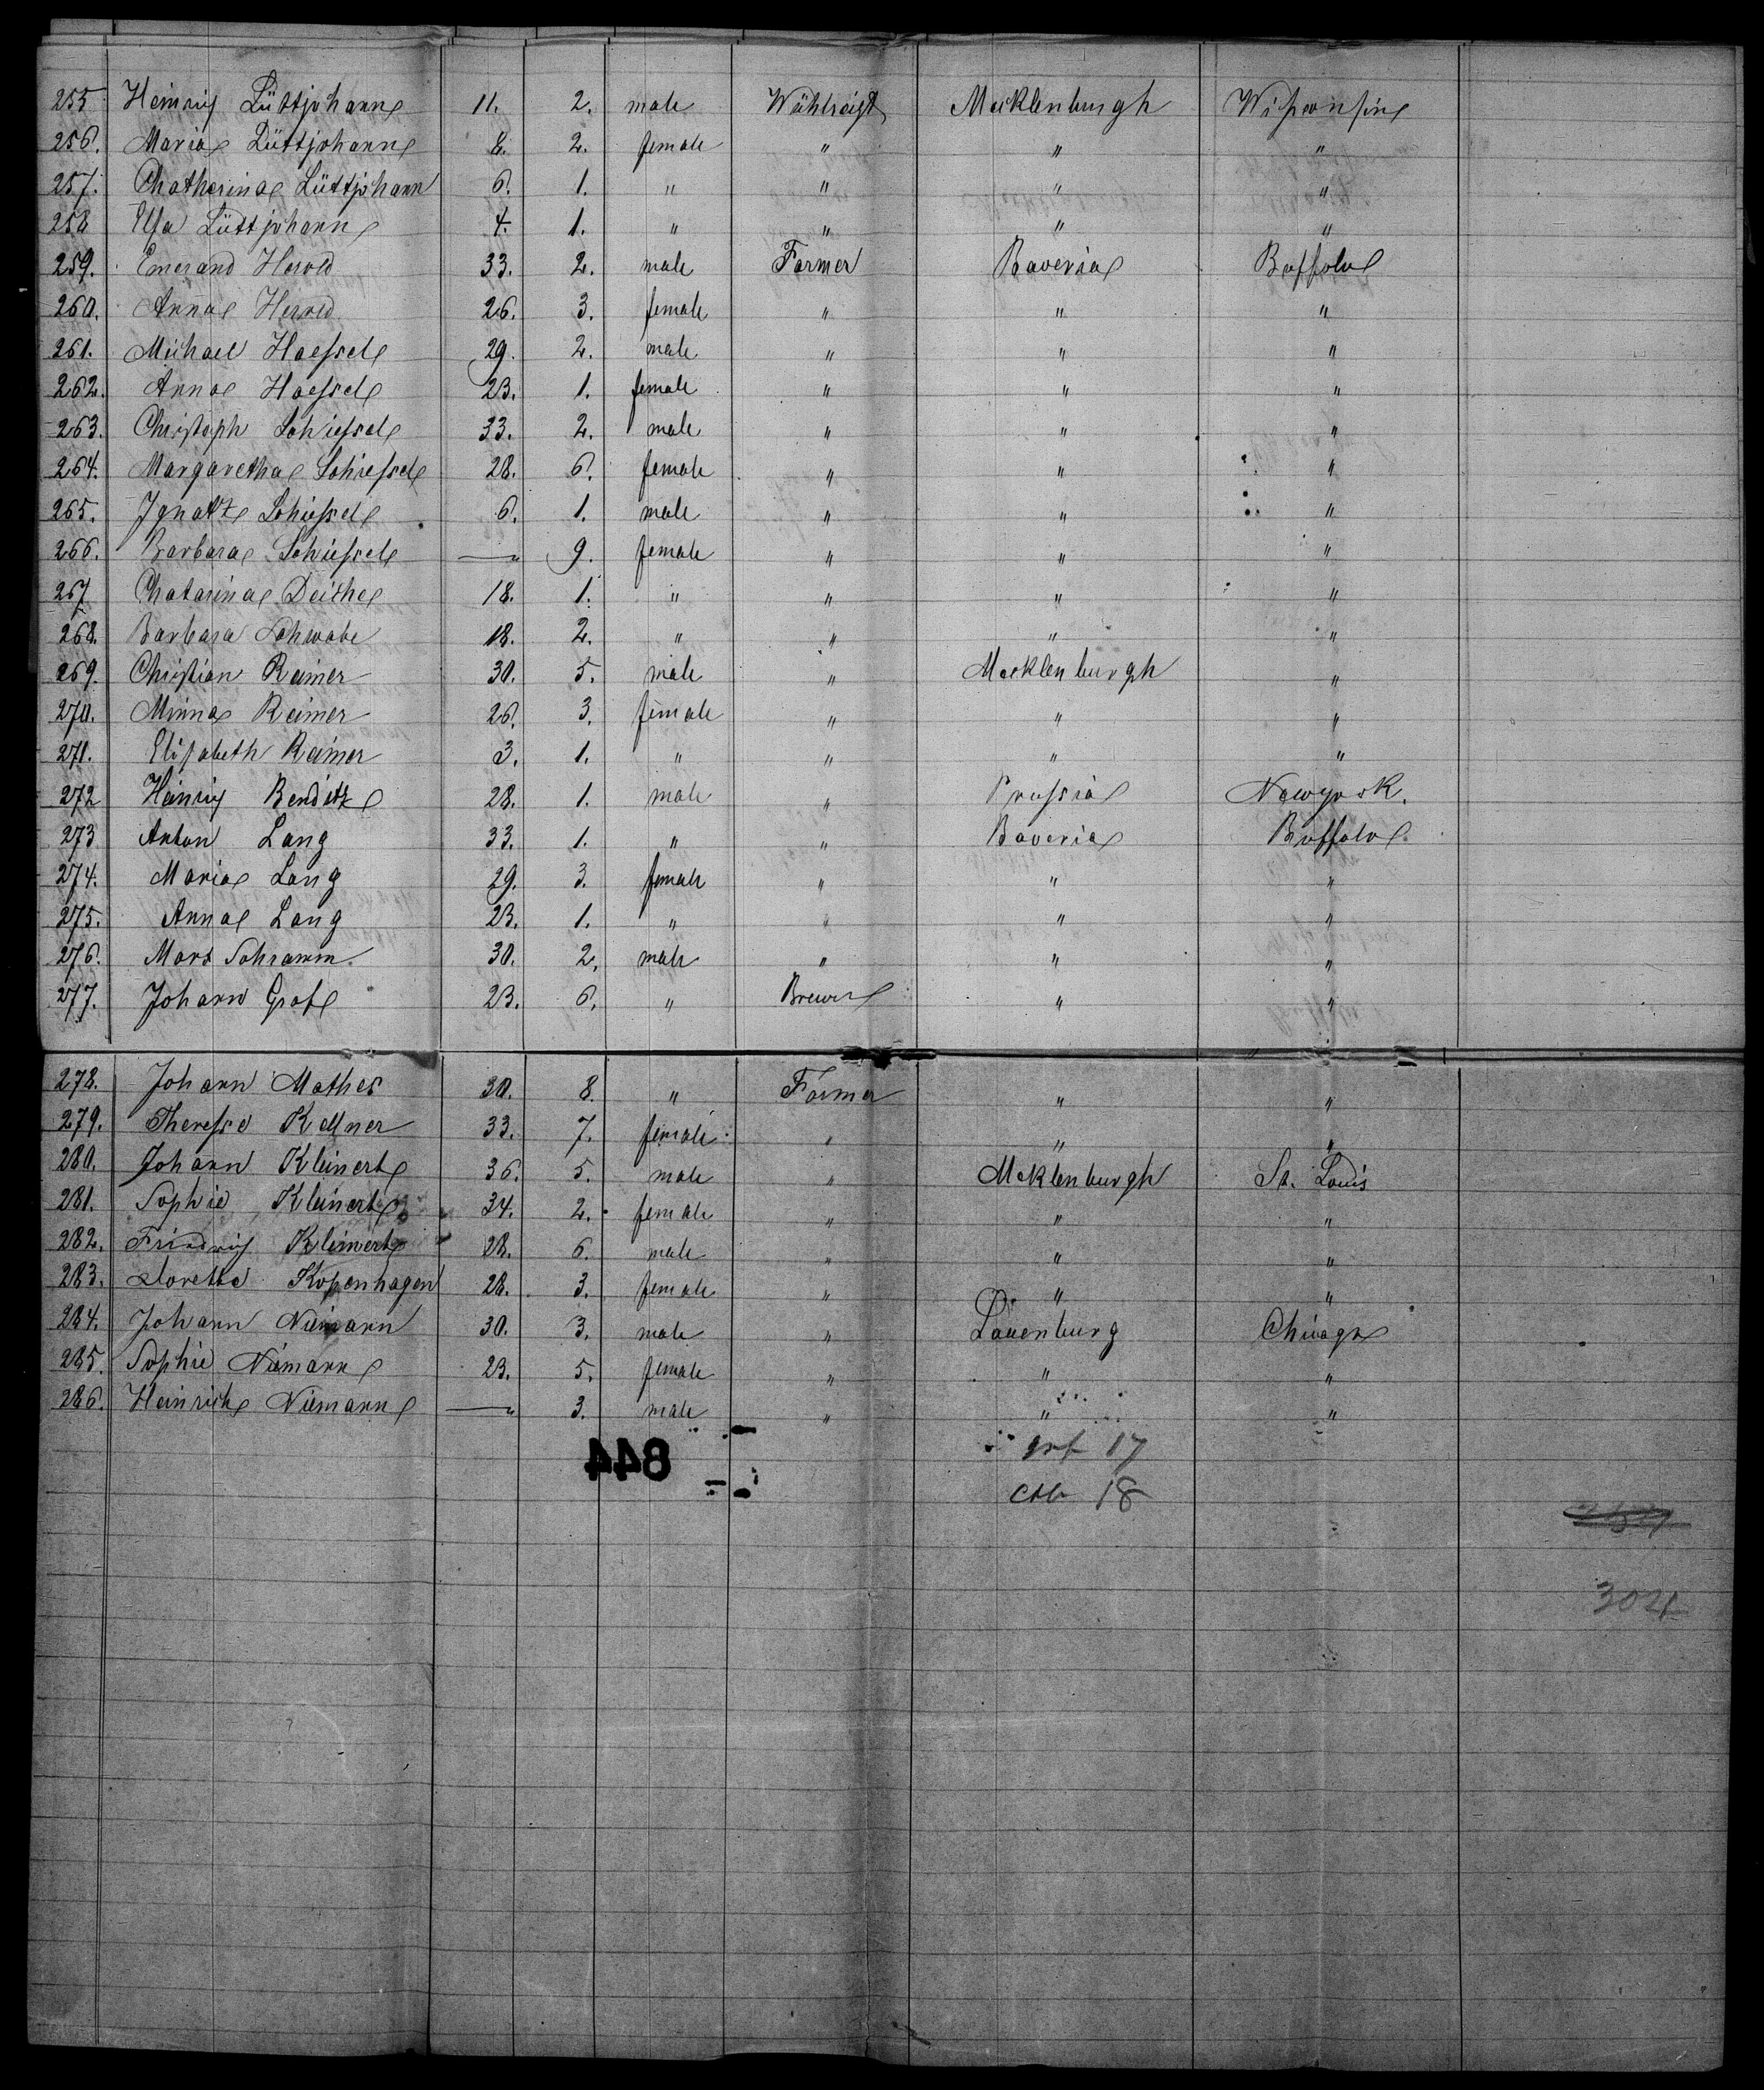 255 Heinrig Lüttjohann 11. 2. male Wählraigt Mecklenburgh Wisconsin
256. Maria Lüttjohann 8. 2. female " " "
257. Chatherina Lüttjohann 6. 1. " " " "
258 Elsa Lüttjohann 4. 1. " " " "
259. Emerand Herold 33. 2. male Farmer Baveria Buffolo
260. Anna Herold 26. 3. female " " "
261. Michael Haessel 29. 2. male " " "
262. Anna Haessel 23. 1. female " " "
263. Christoph Schiessel 33. 2. male " " "
264. Margaretha Schiessel 28. 6. female " " "
265. Ignattz Schiessel 6. 1. male " " "
266. Barbara Schiessel — 9. female " " "
267 Chatarina Deithe 18. 1. " " " "
268. Barbara Schwabe 18. 2. " " " "
269. Christian Reimer 30. 5. male " Mecklenburgh "
270. Minna Reimer 26. 3. female " " "
271. Elisabeth Reimer 3. 1. " " " "
272 Heinrig Benditz 28. 1. male " Prussia Newyork.
273 Anton Lang 33. 1. " " Baveria Buffolo
274. Maria Lang 29. 3. female " " "
275. Anna Lang 23. 1. " " " "
276. Marx Schramm 30. 2. male " " "
277. Johann Graf 23. 6. " Brewer " "
278. Johann Mathes 30. 8. " Farmer " "
279. Theresse Kellner 33. 7. female " " "
280. Johann Kleinert 36. 5. male " Meklenburgh St. Louis
281. Sophie Kleinert 34. 2. female " " "
282. Friedrig Kleinert 28. 6. male " " "
283. Dorette Kopenhagen 28. 3. female " " "
284. Johann Niemann 30. 3. male " Lauenburg Chicago
285. Sophie Niemann 23. 5. female " " "
286. Heinrich Niemann — 3. male " " "
inf 17
844
chl 18
304